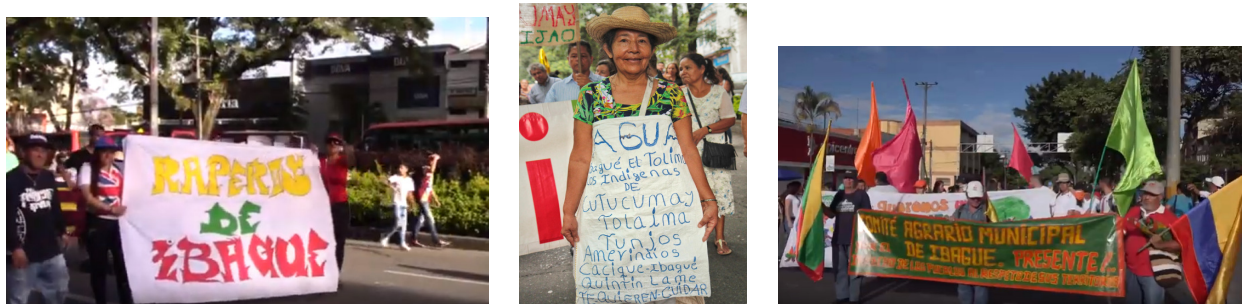 RAPEROS
DE
IBAGUE
BBVA
IMAY
IJAO
i
AGUA
Ibagué El Tolima
Los Indigenas
DE
CUTUCUMAY
Totalma
Tunjos
Amerindios
Cacique-Ibagué
Quintin Lame
TE QUIEREN CUIDAR
Queremos
COMITÉ AGRARIO MUNICIPAL
DE IBAGUE. PRESENTE!